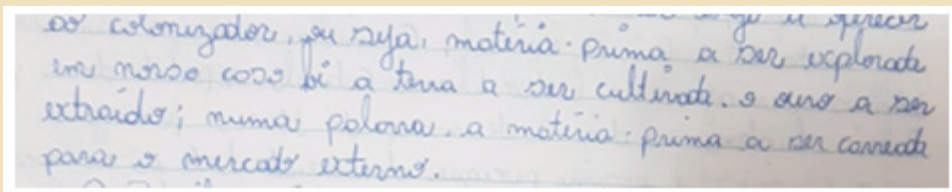 ao colonizador, ou seja, matéria-prima a ser explorada
em nosso caso bi a terra a ser cultivada, o ouro a ser
extraído; numa palavra, a matéria-prima a ser carreada
para o mercado externo.